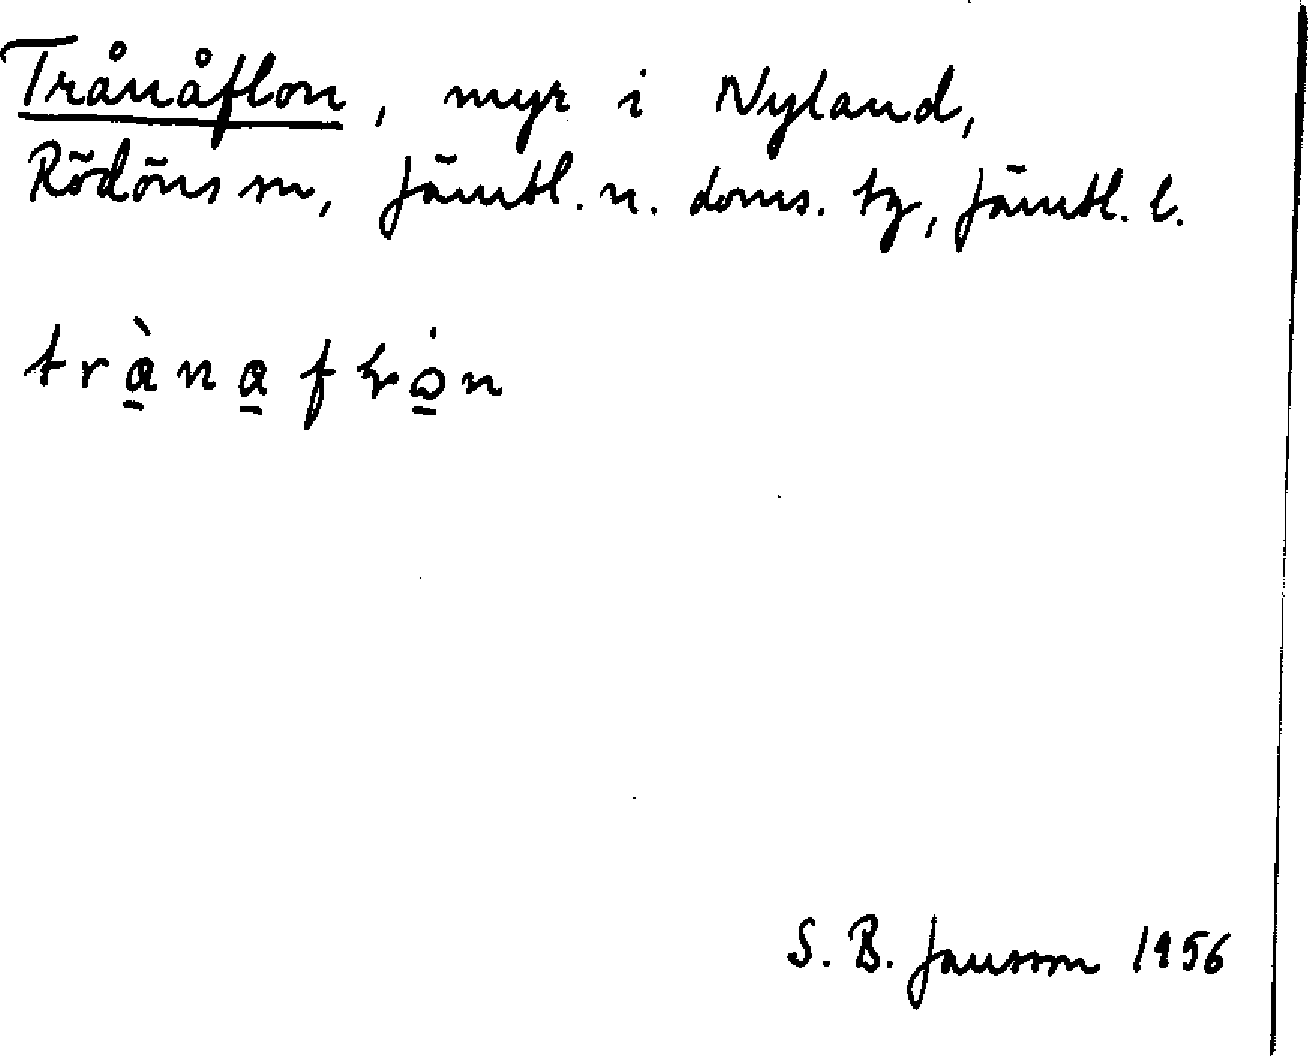 Trånåflon, myr i Nyland,
Rödöns sn, Jämtl. n. doms. tg, Jämtl. l.
S. B. Jansson 1956